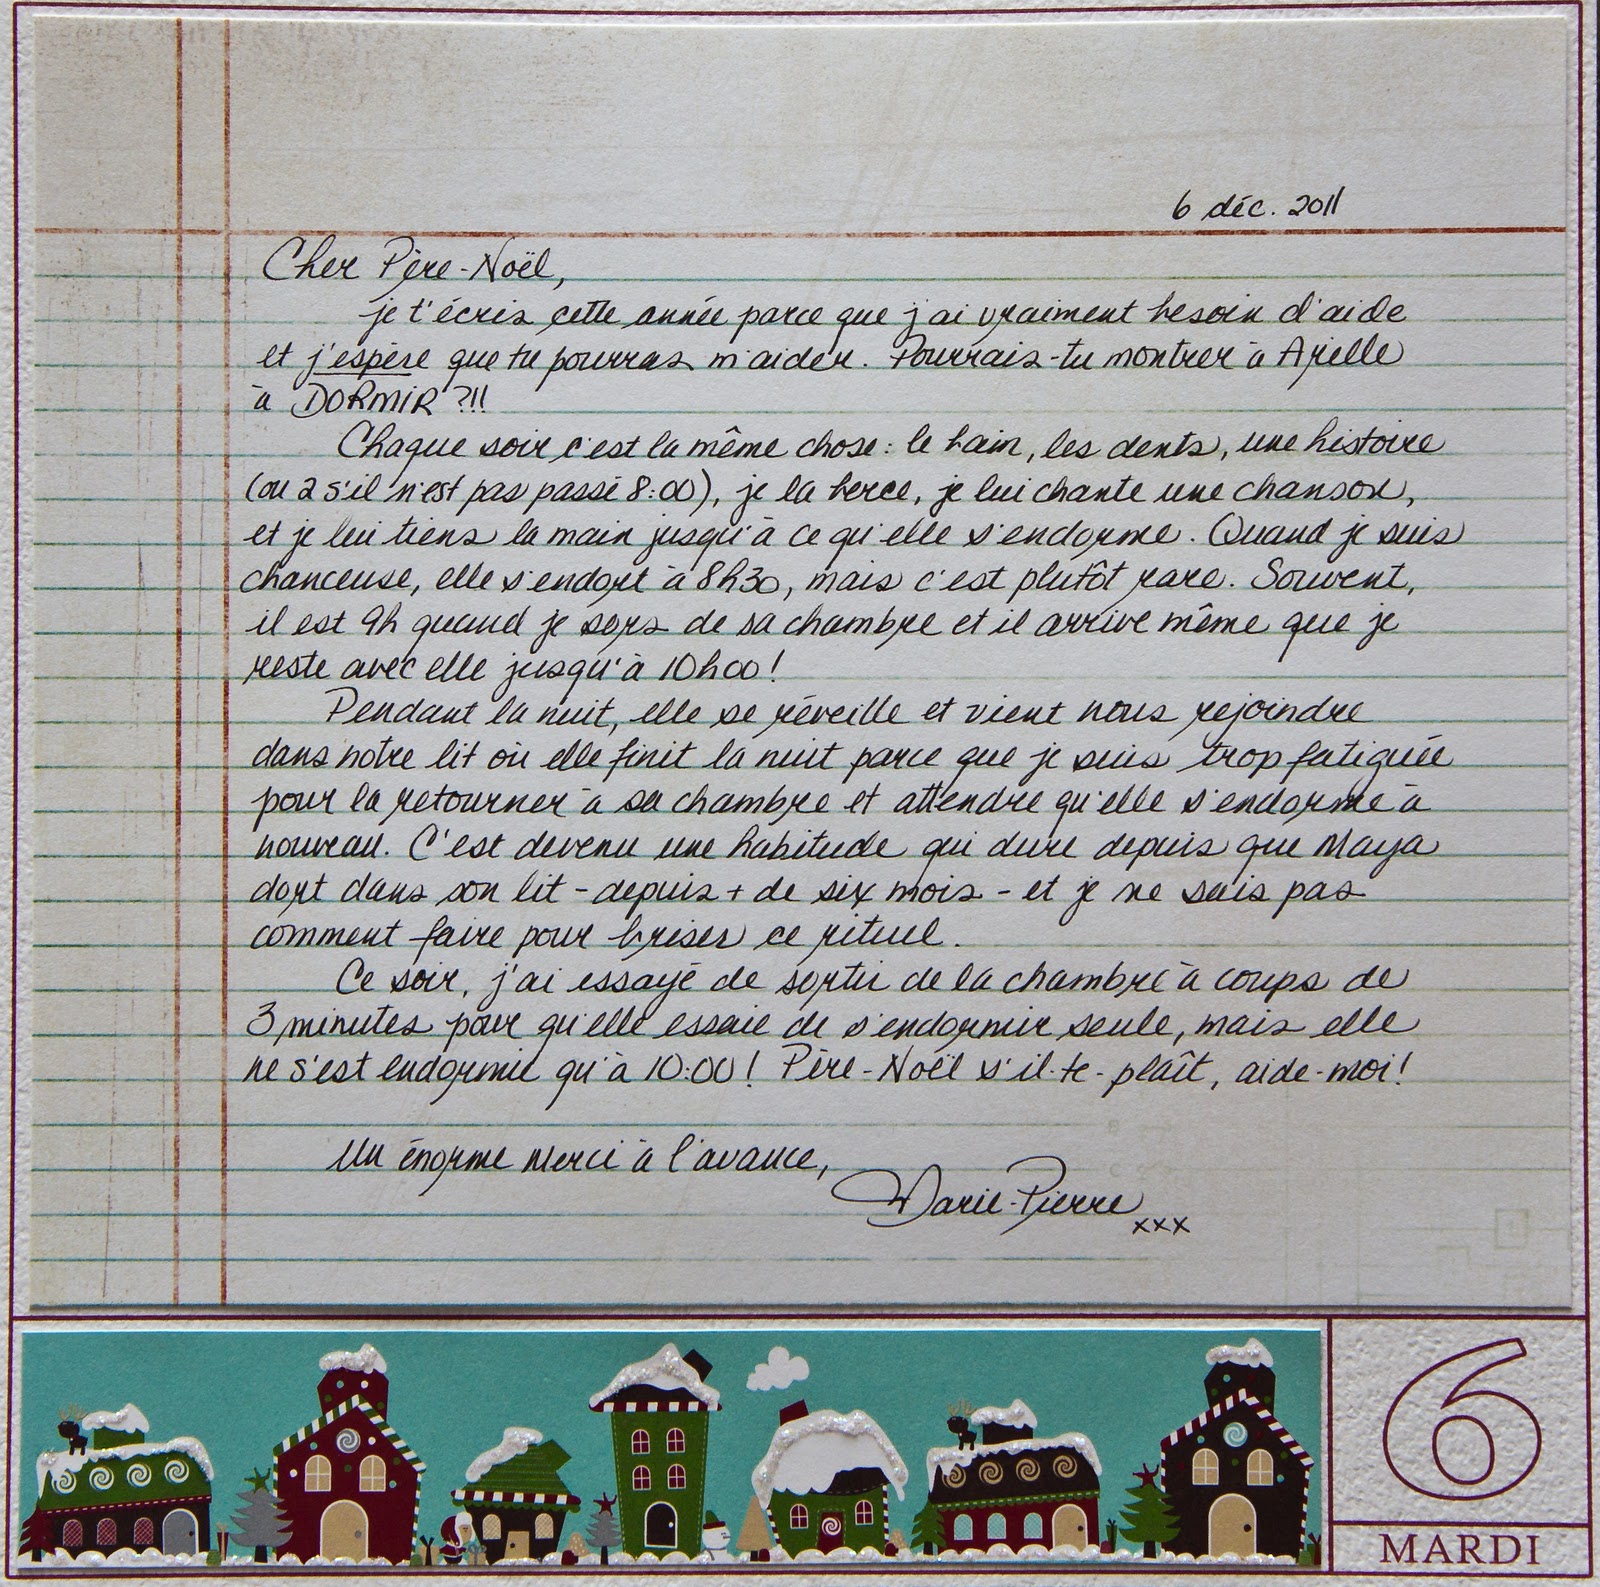 6 déc. 2011
Cher Père-Noël,
je t'écris cette année parce que j'ai vraiment besoin d'aide
et j'espère que tu pourras m'aider. Pourrais-tu montrer à Arielle
à DORMIR ?!!
Chaque soir c'est la même chose : le bain, les dents, une histoire
(ou 2 s'il n'est pas passé 8:00), je la berce, je lui chante une chanson,
et je lui tiens la main jusqu'à ce qu'elle s'endorme. Quand je suis
chanceuse, elle s'endort à 8h30, mais c'est plutôt rare. Souvent,
il est 9h quand je sors de sa chambre et il arrive même que je
reste avec elle jusqu'à 10h00!
Pendant la nuit, elle se réveille et vient nous rejoindre
dans notre lit où elle finit la nuit parce que je suis trop fatiguée
pour la retourner à sa chambre et attendre qu'elle s'endorme à
nouveau. C'est devenu une habitude qui dure depuis que Maya
dort dans son lit - depuis + de six mois - et je ne sais pas
comment faire pour briser ce rituel.
Ce soir, j'ai essayé de sortir de la chambre à coups de
3 minutes pour qu'elle essaie de s'endormir seule, mais elle
ne s'est endormie qu'à 10:00! Père-Noël s'il-te-plaît, aide-moi!
Un énorme merci à l'avance,
Marie-Pierre
xxx
6
MARDI